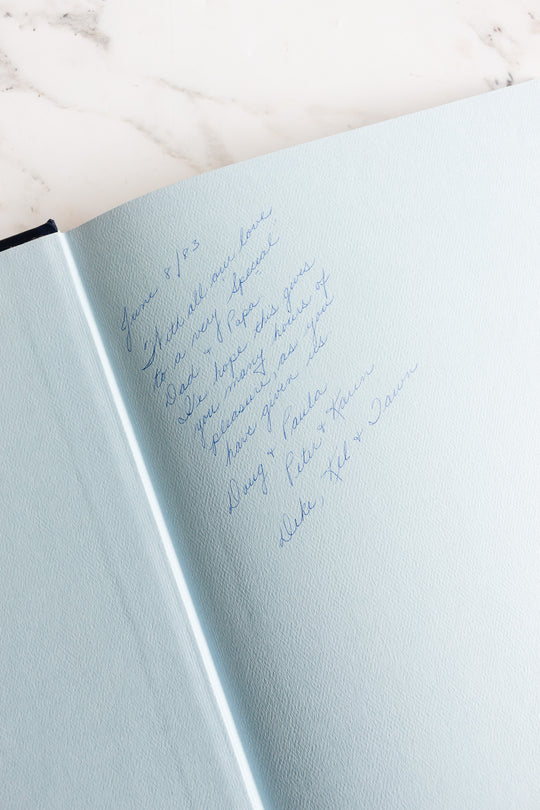 June 8/83
"With all our love
to a very "Special"
Dad & Papa
We hope this gives
you many hours of
pleasure, as you
have given us
Doug & Paula
Peter & Karen
Deke, Kel & Tawn